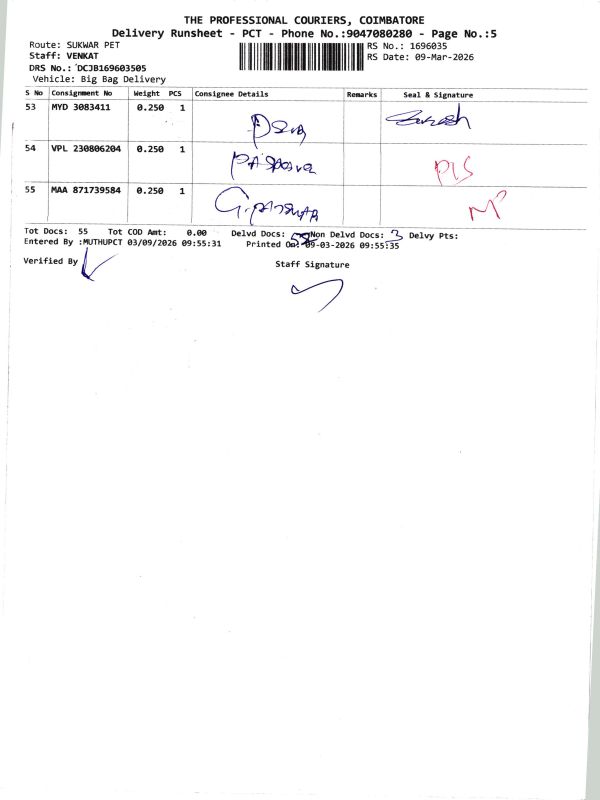 THE PROFESSIONAL COURIERS, COIMBATORE
Delivery Runsheet - PCT - Phone No.:9047080280 - Page No.:5
Route: SUKWAR PET
RS No.: 1696035
Staff: VENKAT
RS Date: 09-Mar-2026
DRS No.: DCJB169603505
Vehicle: Big Bag Delivery
S No Consignment No Weight PCS Consignee Details Remarks Seal & Signature
53 MYD 3083411 0.250 1
54 VPL 230806204 0.250 1
55 MAA 871739584 0.250 1
Tot Docs: 55 Tot COD Amt: 0.00 Delvd Docs: Non Delvd Docs: 3 Delvy Pts:
Entered By :MUTHUPCT 03/09/2026 09:55:31 Printed On: 09-03-2026 09:55:35
Verified By
Staff Signature